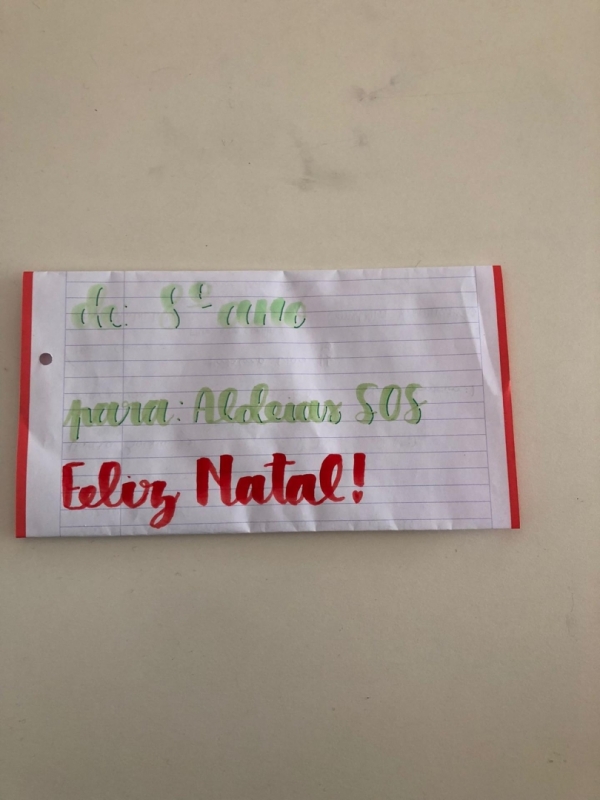 de: 8º ano
para: Aldeias SOS
Feliz Natal!